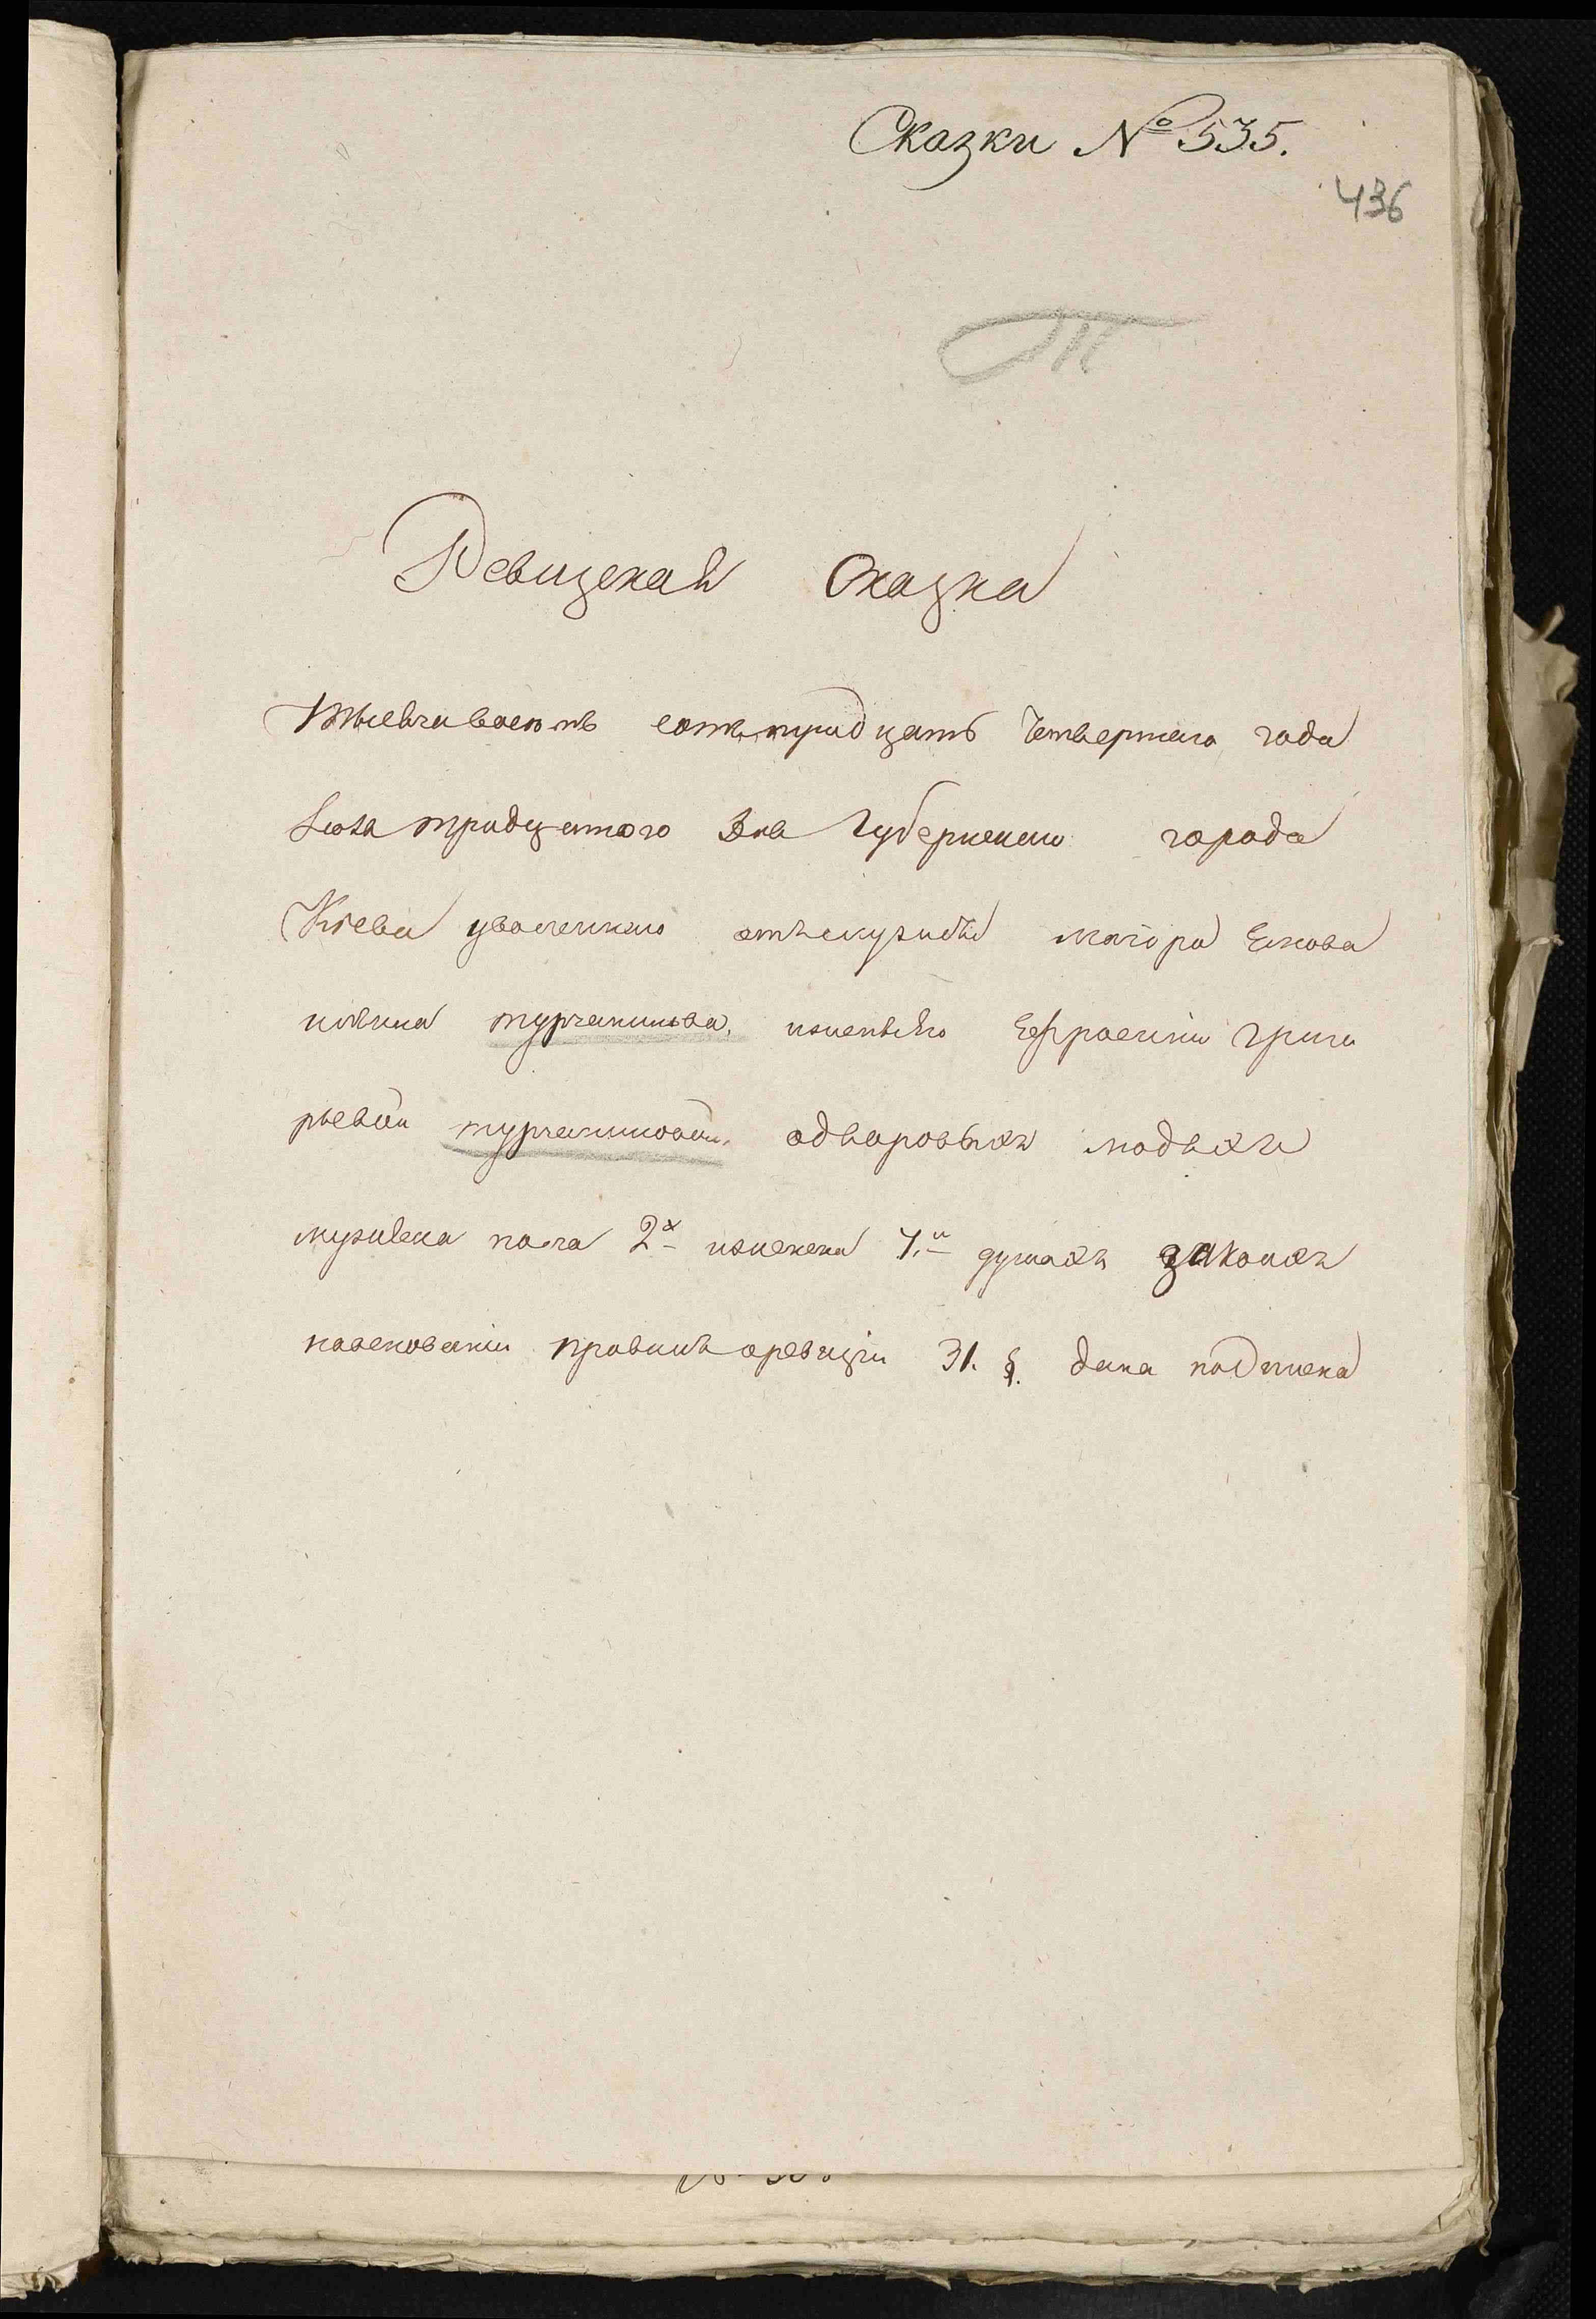 Сказки № 535.
436
Т
Ревизская Сказка
Тысяча восемъ сотъ тридцать Четвертаго года
Июля тридцатого Дня Губернскаго города
Кіева уволеннаго отъ службы маіора Якова
турчанинова, и жены его Ефросиніи Григо
рьевой турчаниновой, о дворовыхъ людяхъ
мужеска пола 2х и женска 4.и душахъ за коихъ
на основаніи правилъ о ревизіи 31. §. дана подписка